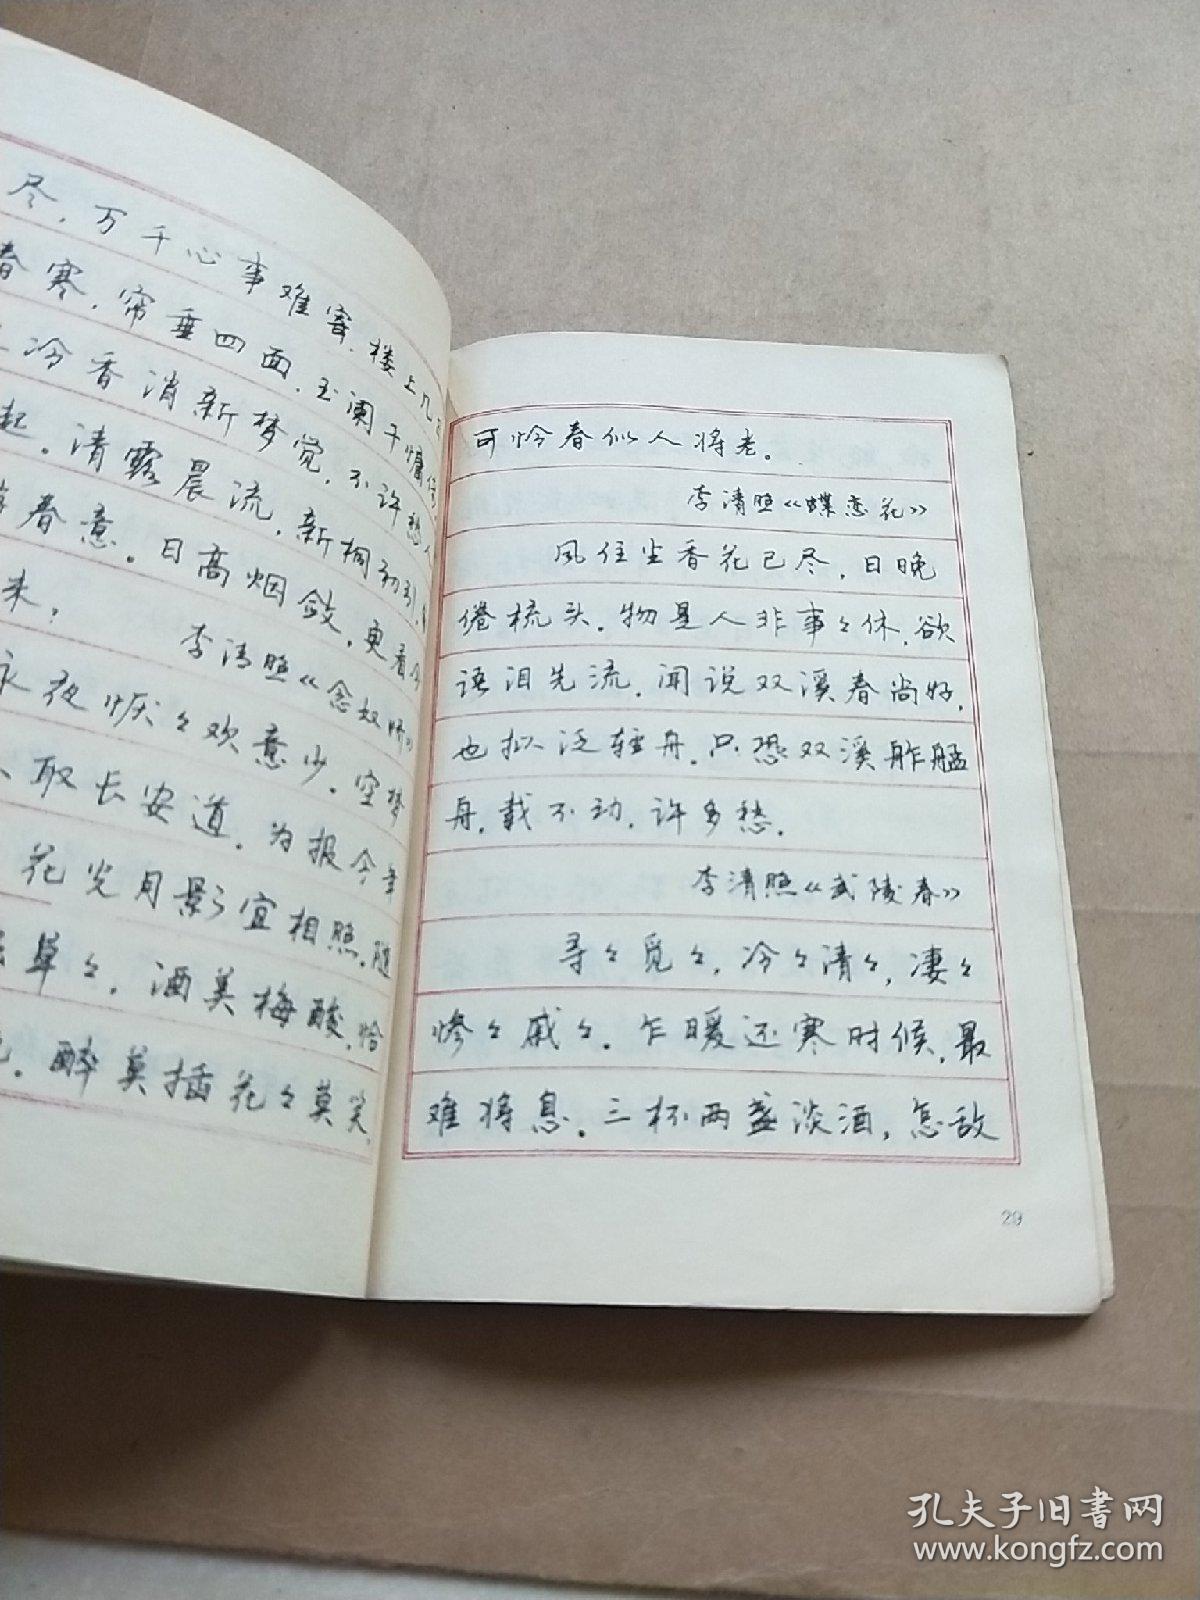 尽，万千心事难寄．楼上几
春寒，帘垂四面．玉阑干慵
冷香消新梦觉，不许愁人
起．清露晨流，新桐初引，
春意．日高烟敛，更看今
来，
李清照《念奴娇》
永夜恹々欢意少．空梦
取长安道．为报今年
花光月影宜相照．随
草々，酒美梅酸，恰
醉莫插花々莫笑，
可怜春似人将老．
李清照《蝶恋花》
风住尘香花已尽，日晚
倦梳头．物是人非事々休，欲
语泪先流，闻说双溪春尚好，
也拟泛轻舟．只恐双溪舴艋
舟，载不动，许多愁．
李清照《武陵春》
寻々觅々，冷々清々，凄々
惨々戚々．乍暖还寒时候，最
难将息．三杯两盏淡酒，怎敌
29
孔夫子旧书网
www.kongfz.com